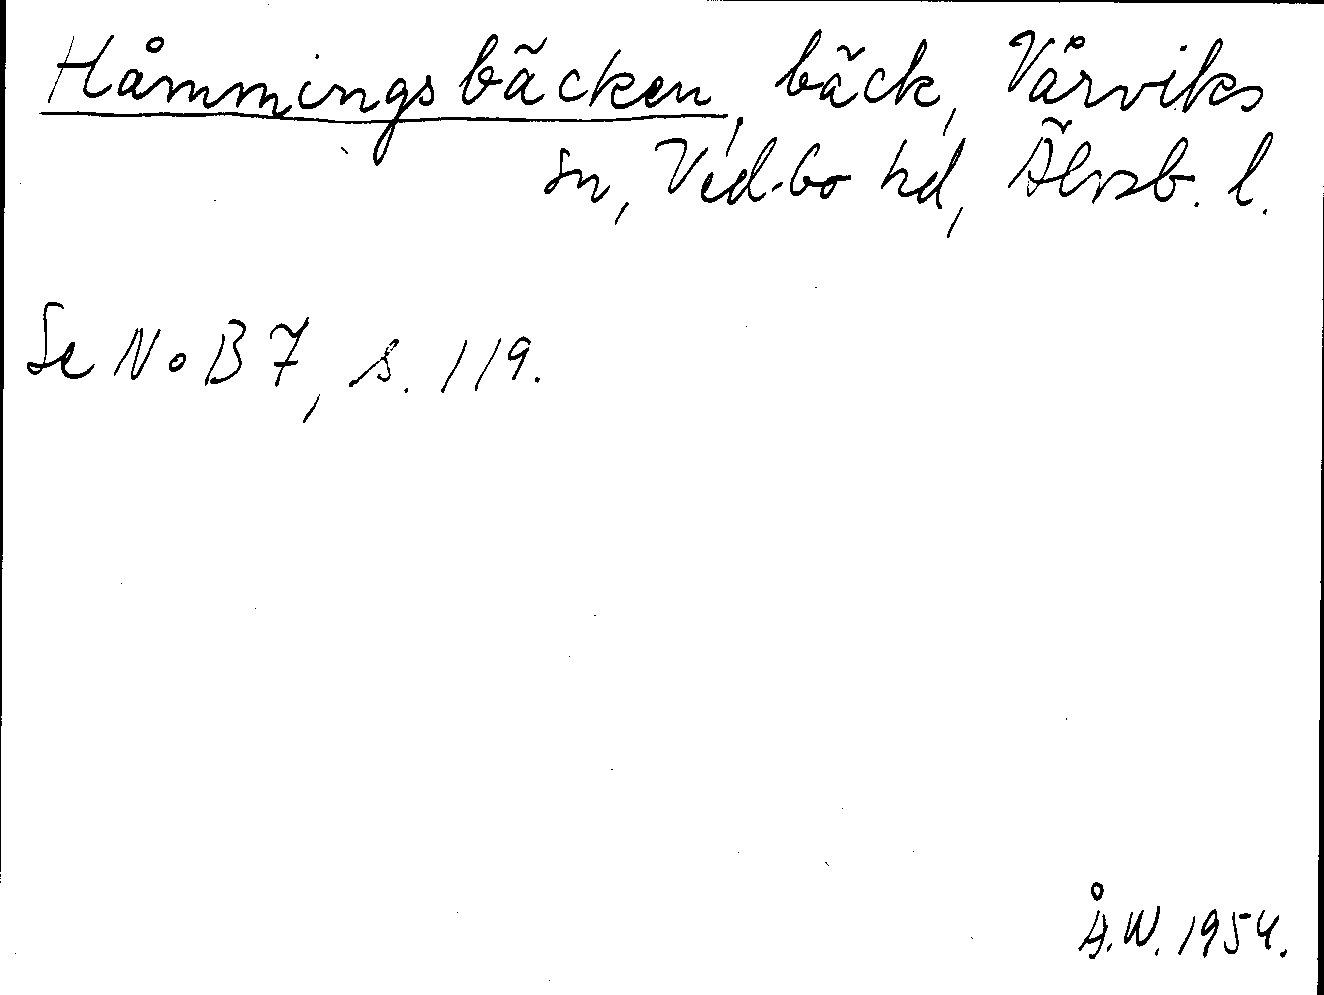 Håmmingsbäcken, bäck, Vårviks
sn, Vedbo hd, Älvsb. l.
Se NoB 7, s. 119.
Å.W. 1954.